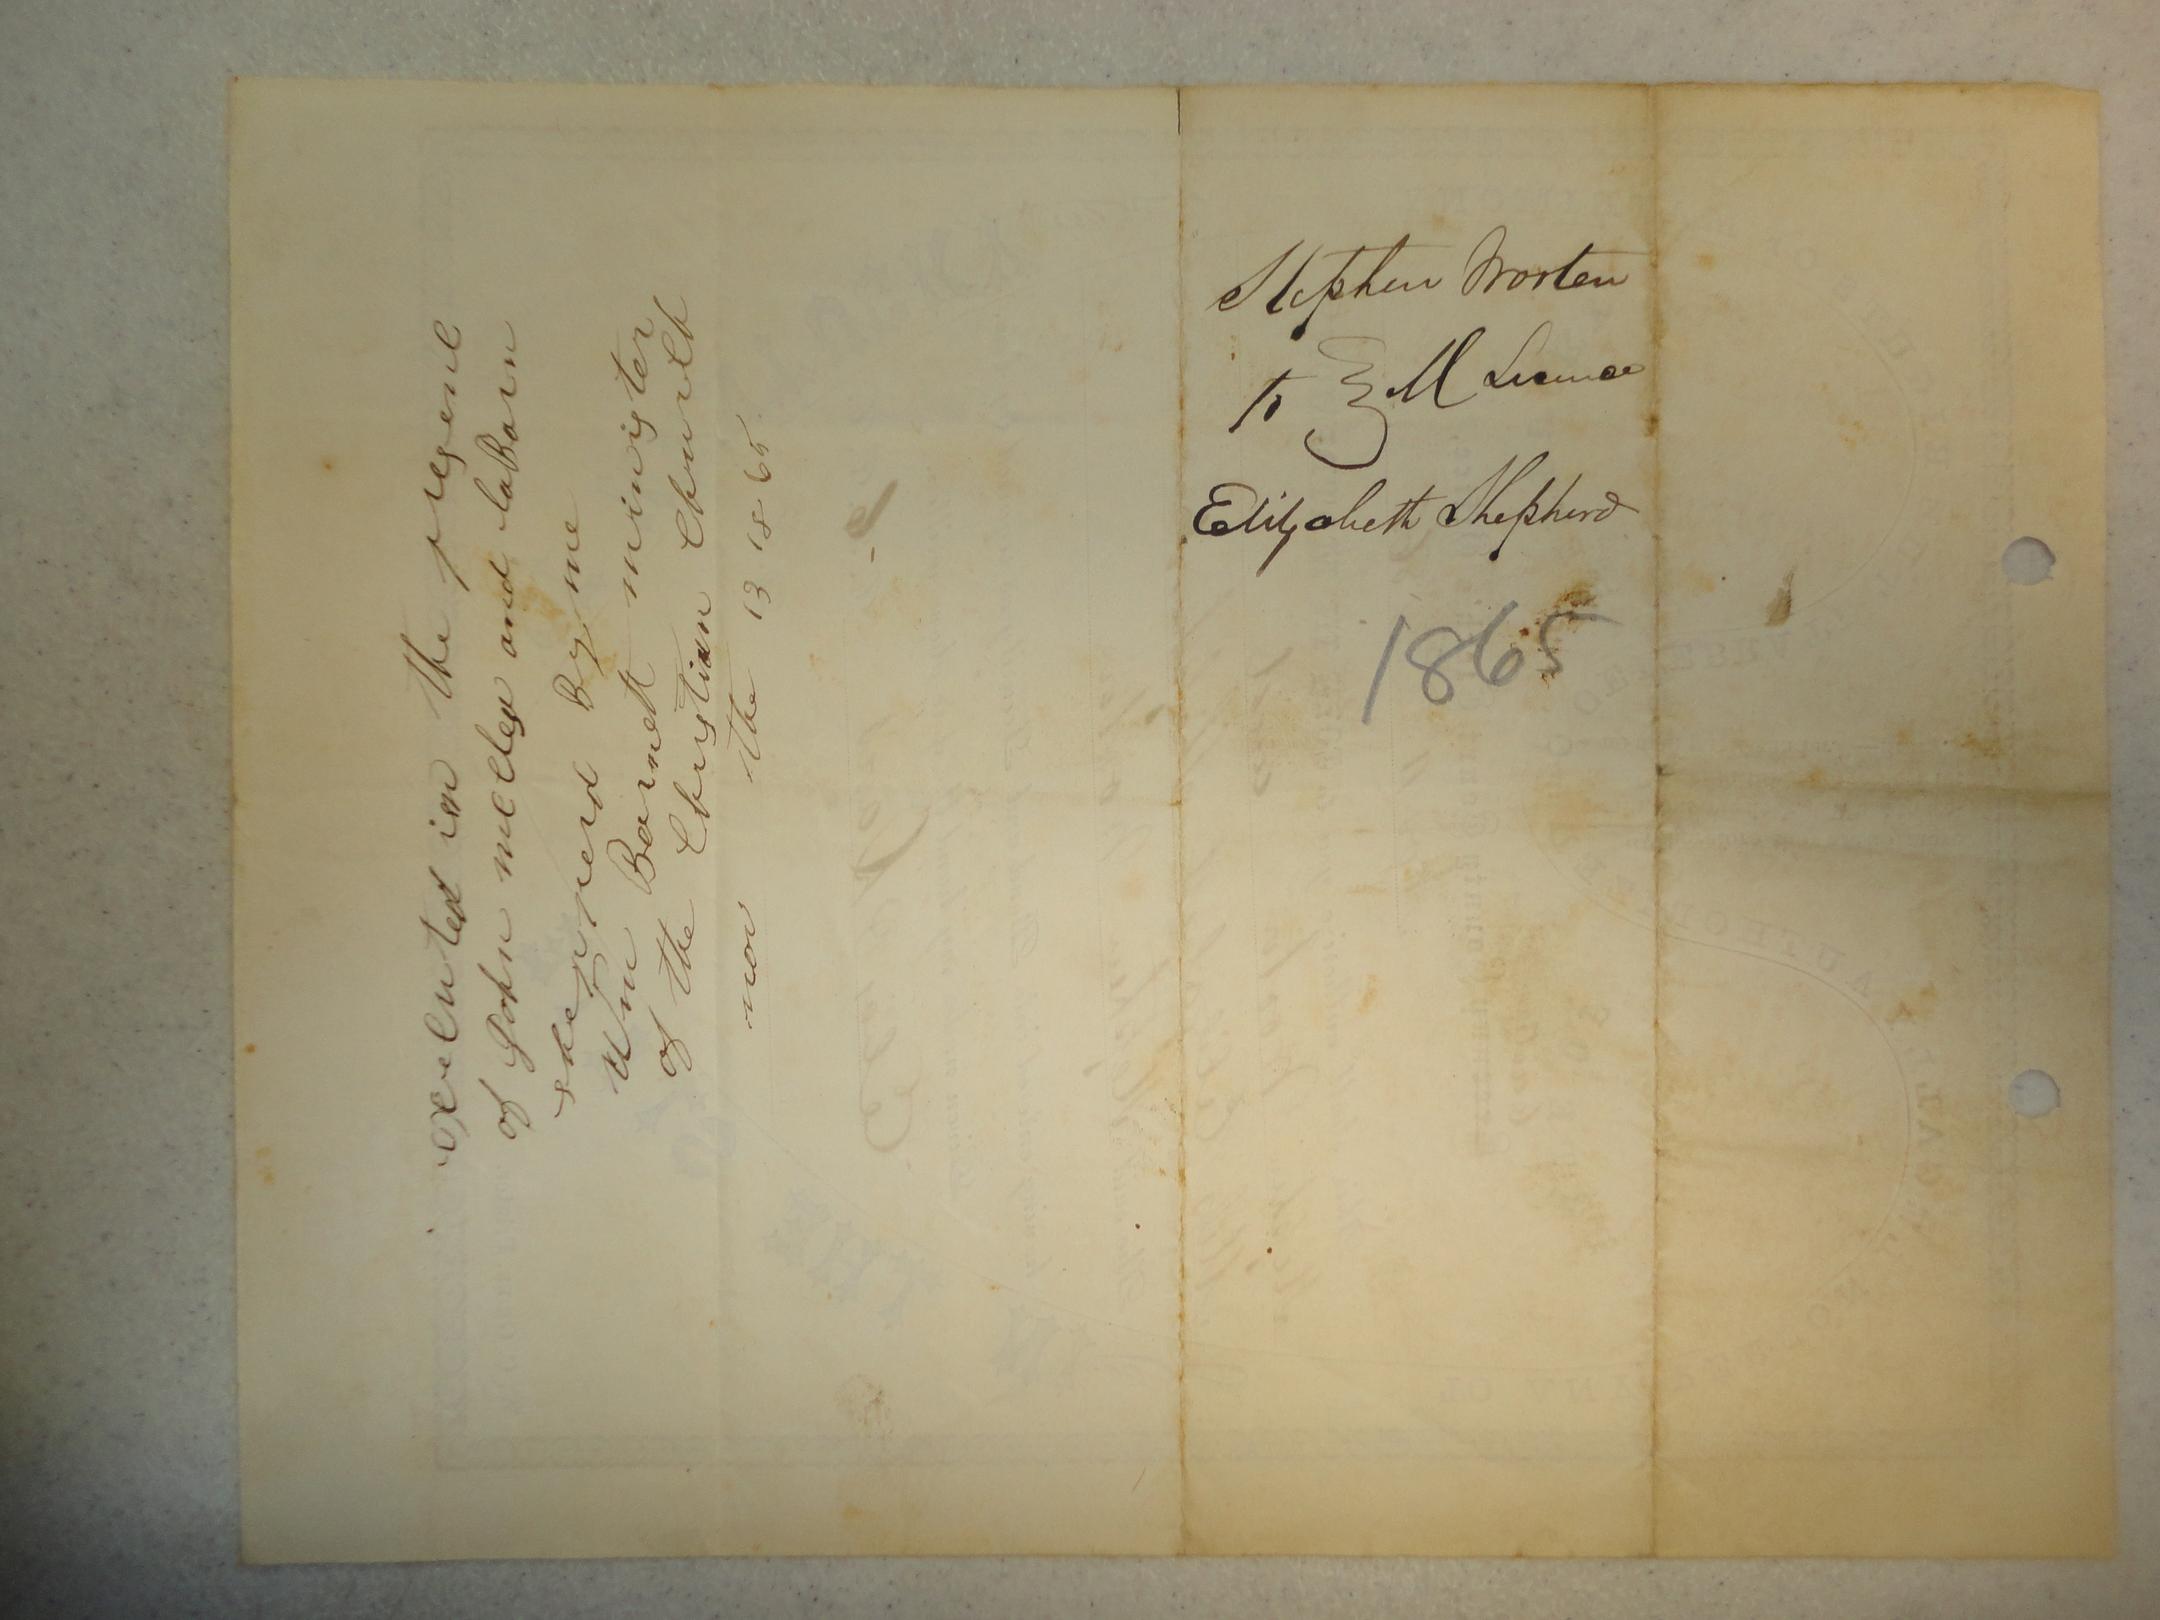 Stephen Worten
to } M Licence
Elizabeth Shepherd
1865
executed in the presene
of John melley and laBorn
shepperd By me
Wm Barnett minister
of the Christian Church
nov the 13 1865